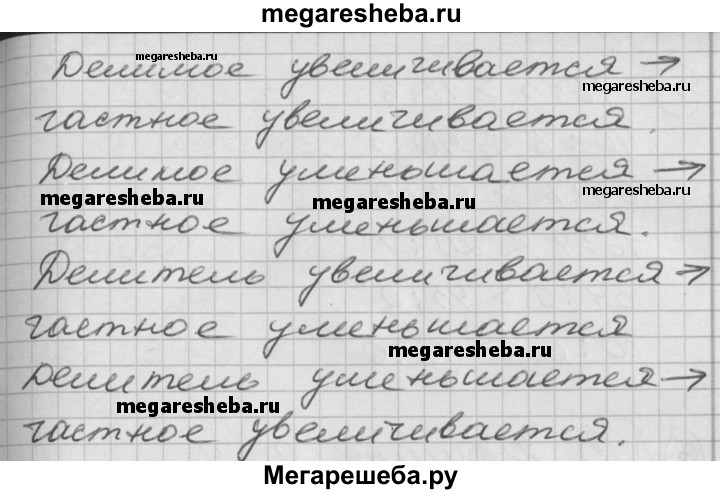 megaresheba.ru
Делимое увеличивается →
megaresheba.ru
megaresheba.ru
частное увеличивается.
Делимое уменьшается →
megaresheba.ru
megaresheba.ru
megaresheba.ru
частное уменьшается.
Делитель увеличивается →
частное уменьшается
megaresheba.ru
Делитель уменьшается →
megaresheba.ru
частное увеличивается.
Мегарешеба.ру